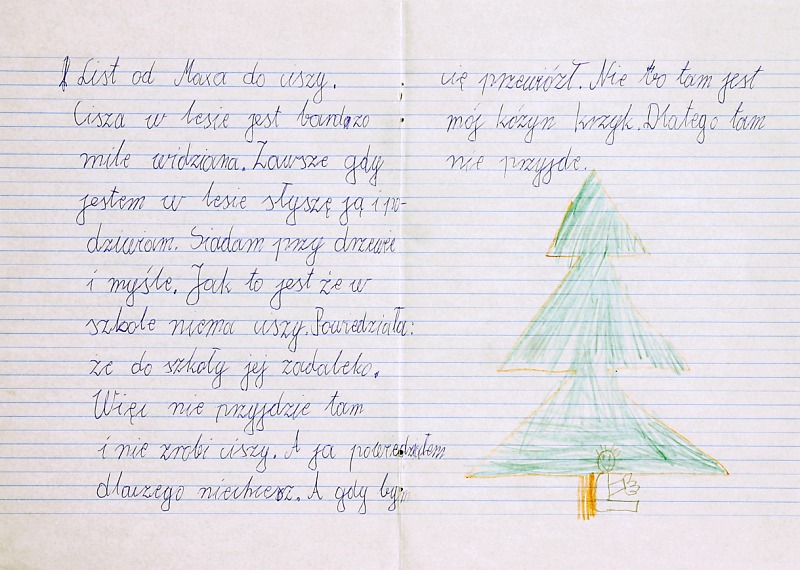 List od Maxa do ciszy.
Cisza w lesie jest bardzo
mile widziana. Zawsze gdy
jestem w lesie słyszę ją i po-
dziwiam. Siadam przy drzewie
i myślę. Jak to jest że w
szkole niema ciszy. Powiedziała:
że do szkoły jej zadaleko.
Więc nie przyjdzie tam
i nie zrobi ciszy. A ja powiedziałem
dlaczego niechcesz. A gdy bym
cię przewiózł. Nie bo tam jest
mój kózyn krzyk. Dlatego tam
nie przyjdę.